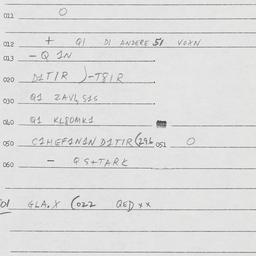 011 0
012 + Q1 DI ANDERE 51 VOXN
013 - Q 1N
020 D1TIR )-T8IR
030 Q1 ZAVL S1S
040 Q1 KL8OMK1
050 C1HEF1N1N D1TIR (296 051 0
060 - Q S+TARK
01 GLA.X (022 QED XX